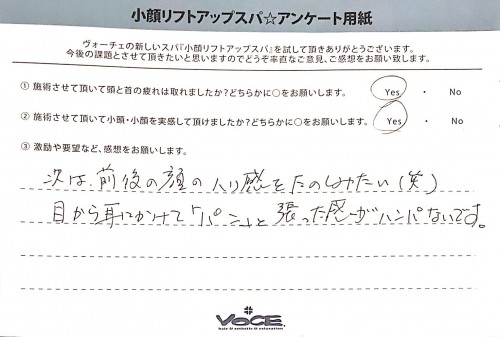 小顔リフトアップスパ☆アンケート用紙
ヴォーチェの新しいスパ『小顔リフトアップスパ』を試して頂きありがとうございます。
今後の課題とさせて頂きたいと思いますのでどうぞ率直なご意見、ご感想をお願い致します。
① 施術させて頂いて頭と首の疲れは取れましたか?どちらかに○をお願いします。 Yes ・ No
② 施術させて頂いて小頭・小顔を実感して頂けましたか?どちらかに○をお願いします。 Yes ・ No
③ 激励や要望など、感想をお願いします。
次は、前後の顔の入り感をたのしみたい(笑)
目から耳にかけて「パーン」と張った感がハンパないです。
VOCE.
hair & esthetic & relaxation